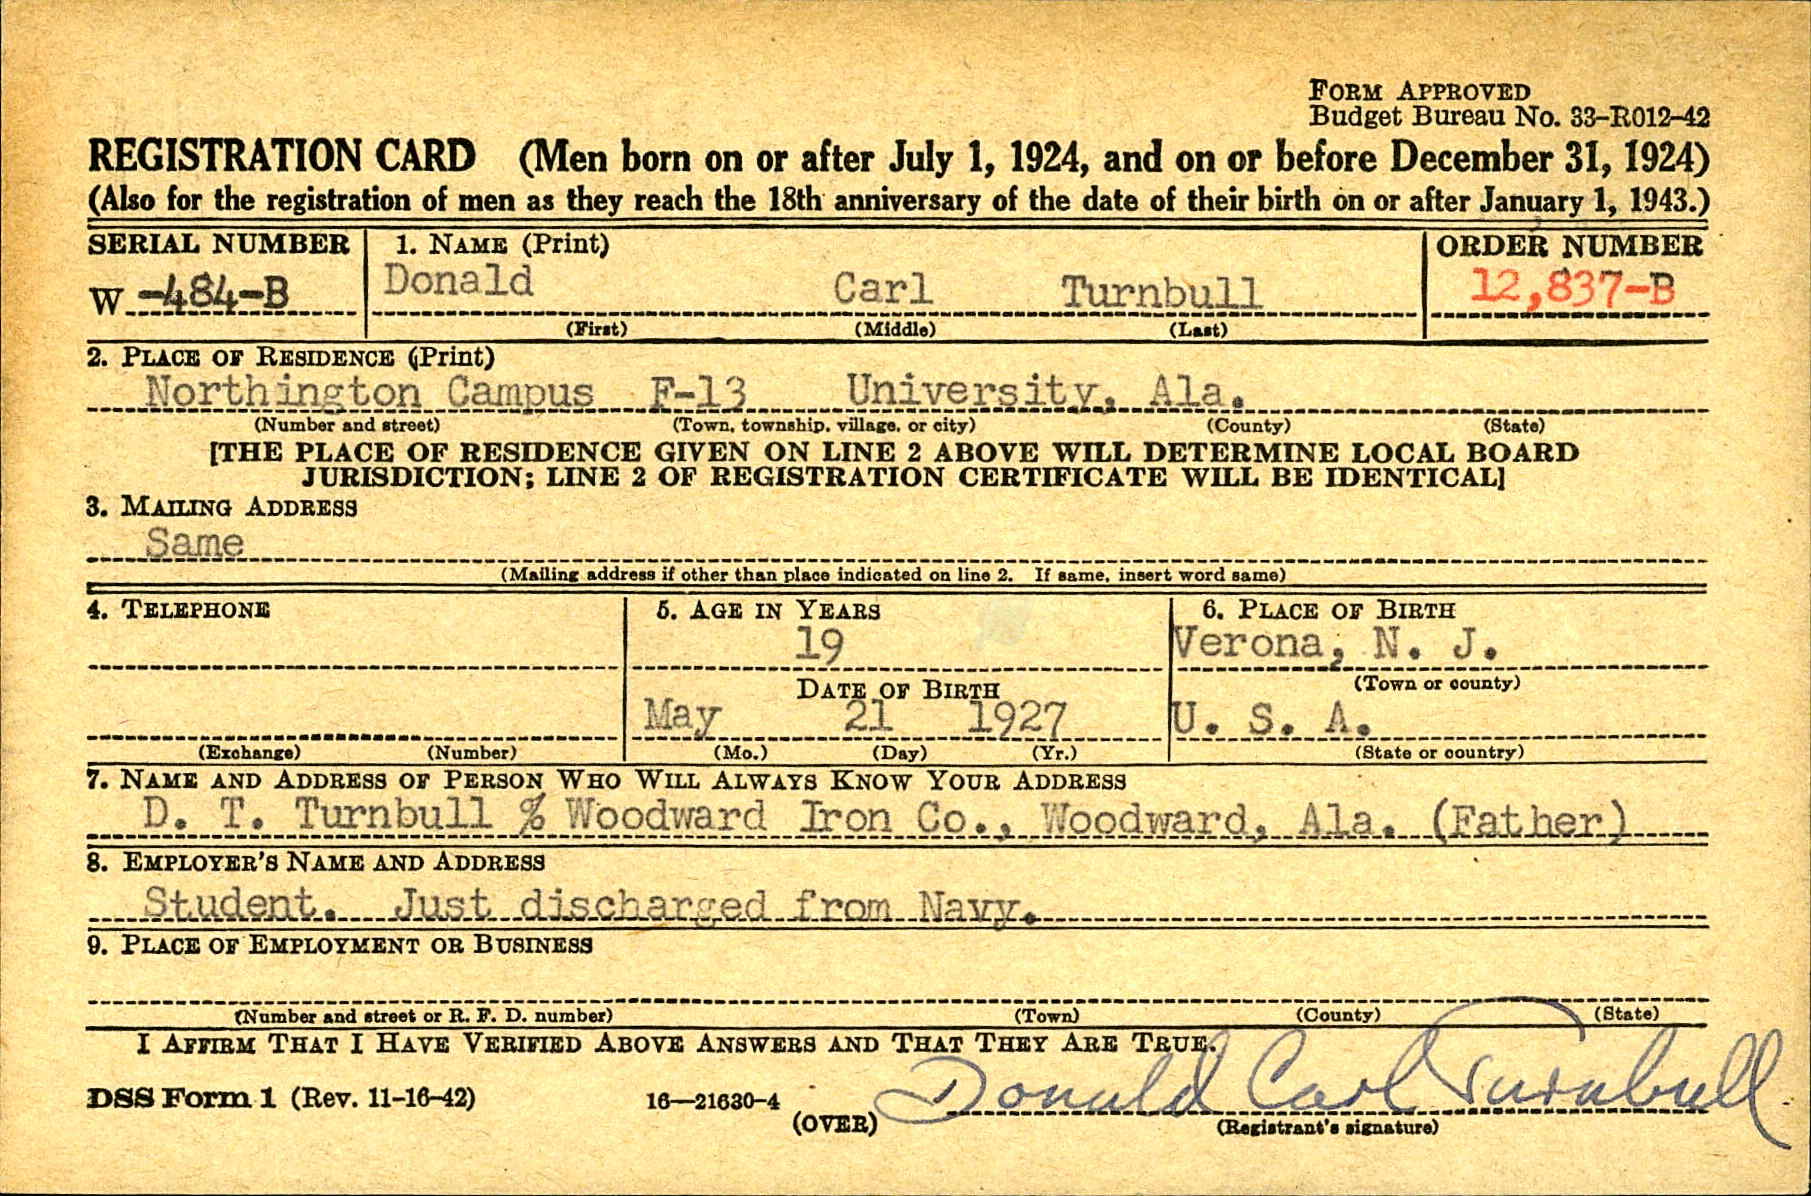 FORM APPROVED
Budget Bureau No. 33-R012-42
REGISTRATION CARD (Men born on or after July 1, 1924, and on or before December 31, 1924)
(Also for the registration of men as they reach the 18th anniversary of the date of their birth on or after January 1, 1943.)
SERIAL NUMBER 1. NAME (Print) ORDER NUMBER
W -484-B Donald Carl Turnbull 12,837-B
(First) (Middle) (Last)
2. PLACE OF RESIDENCE (Print)
Northington Campus F-13 University, Ala.
(Number and street) (Town, township, village, or city) (County) (State)
[THE PLACE OF RESIDENCE GIVEN ON LINE 2 ABOVE WILL DETERMINE LOCAL BOARD
JURISDICTION; LINE 2 OF REGISTRATION CERTIFICATE WILL BE IDENTICAL]
3. MAILING ADDRESS
Same
(Mailing address if other than place indicated on line 2. If same, insert word same)
4. TELEPHONE 5. AGE IN YEARS 6. PLACE OF BIRTH
19 Verona, N. J.
DATE OF BIRTH (Town or county)
May 21 1927 U. S. A.
(Exchange) (Number) (Mo.) (Day) (Yr.) (State or country)
7. NAME AND ADDRESS OF PERSON WHO WILL ALWAYS KNOW YOUR ADDRESS
D. T. Turnbull % Woodward Iron Co., Woodward, Ala. (Father)
8. EMPLOYER'S NAME AND ADDRESS
Student. Just discharged from Navy.
9. PLACE OF EMPLOYMENT OR BUSINESS
(Number and street or R. F. D. number) (Town) (County) (State)
I AFFIRM THAT I HAVE VERIFIED ABOVE ANSWERS AND THAT THEY ARE TRUE.
DSS Form 1 (Rev. 11-16-42) 16—21630-4 (OVER) Donald Carl Turnbull
(Registrant's signature)